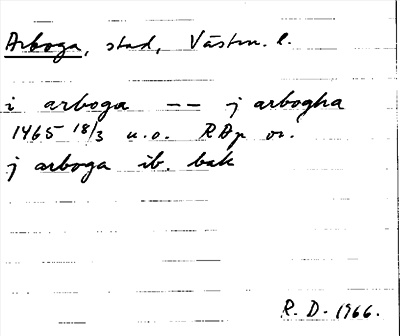 Arboga, stad, Västm. l.
i arboga -- j arbogha
1465 18/3 u.o. RAp or.
j arboga ib. bak
R. D. 1966.